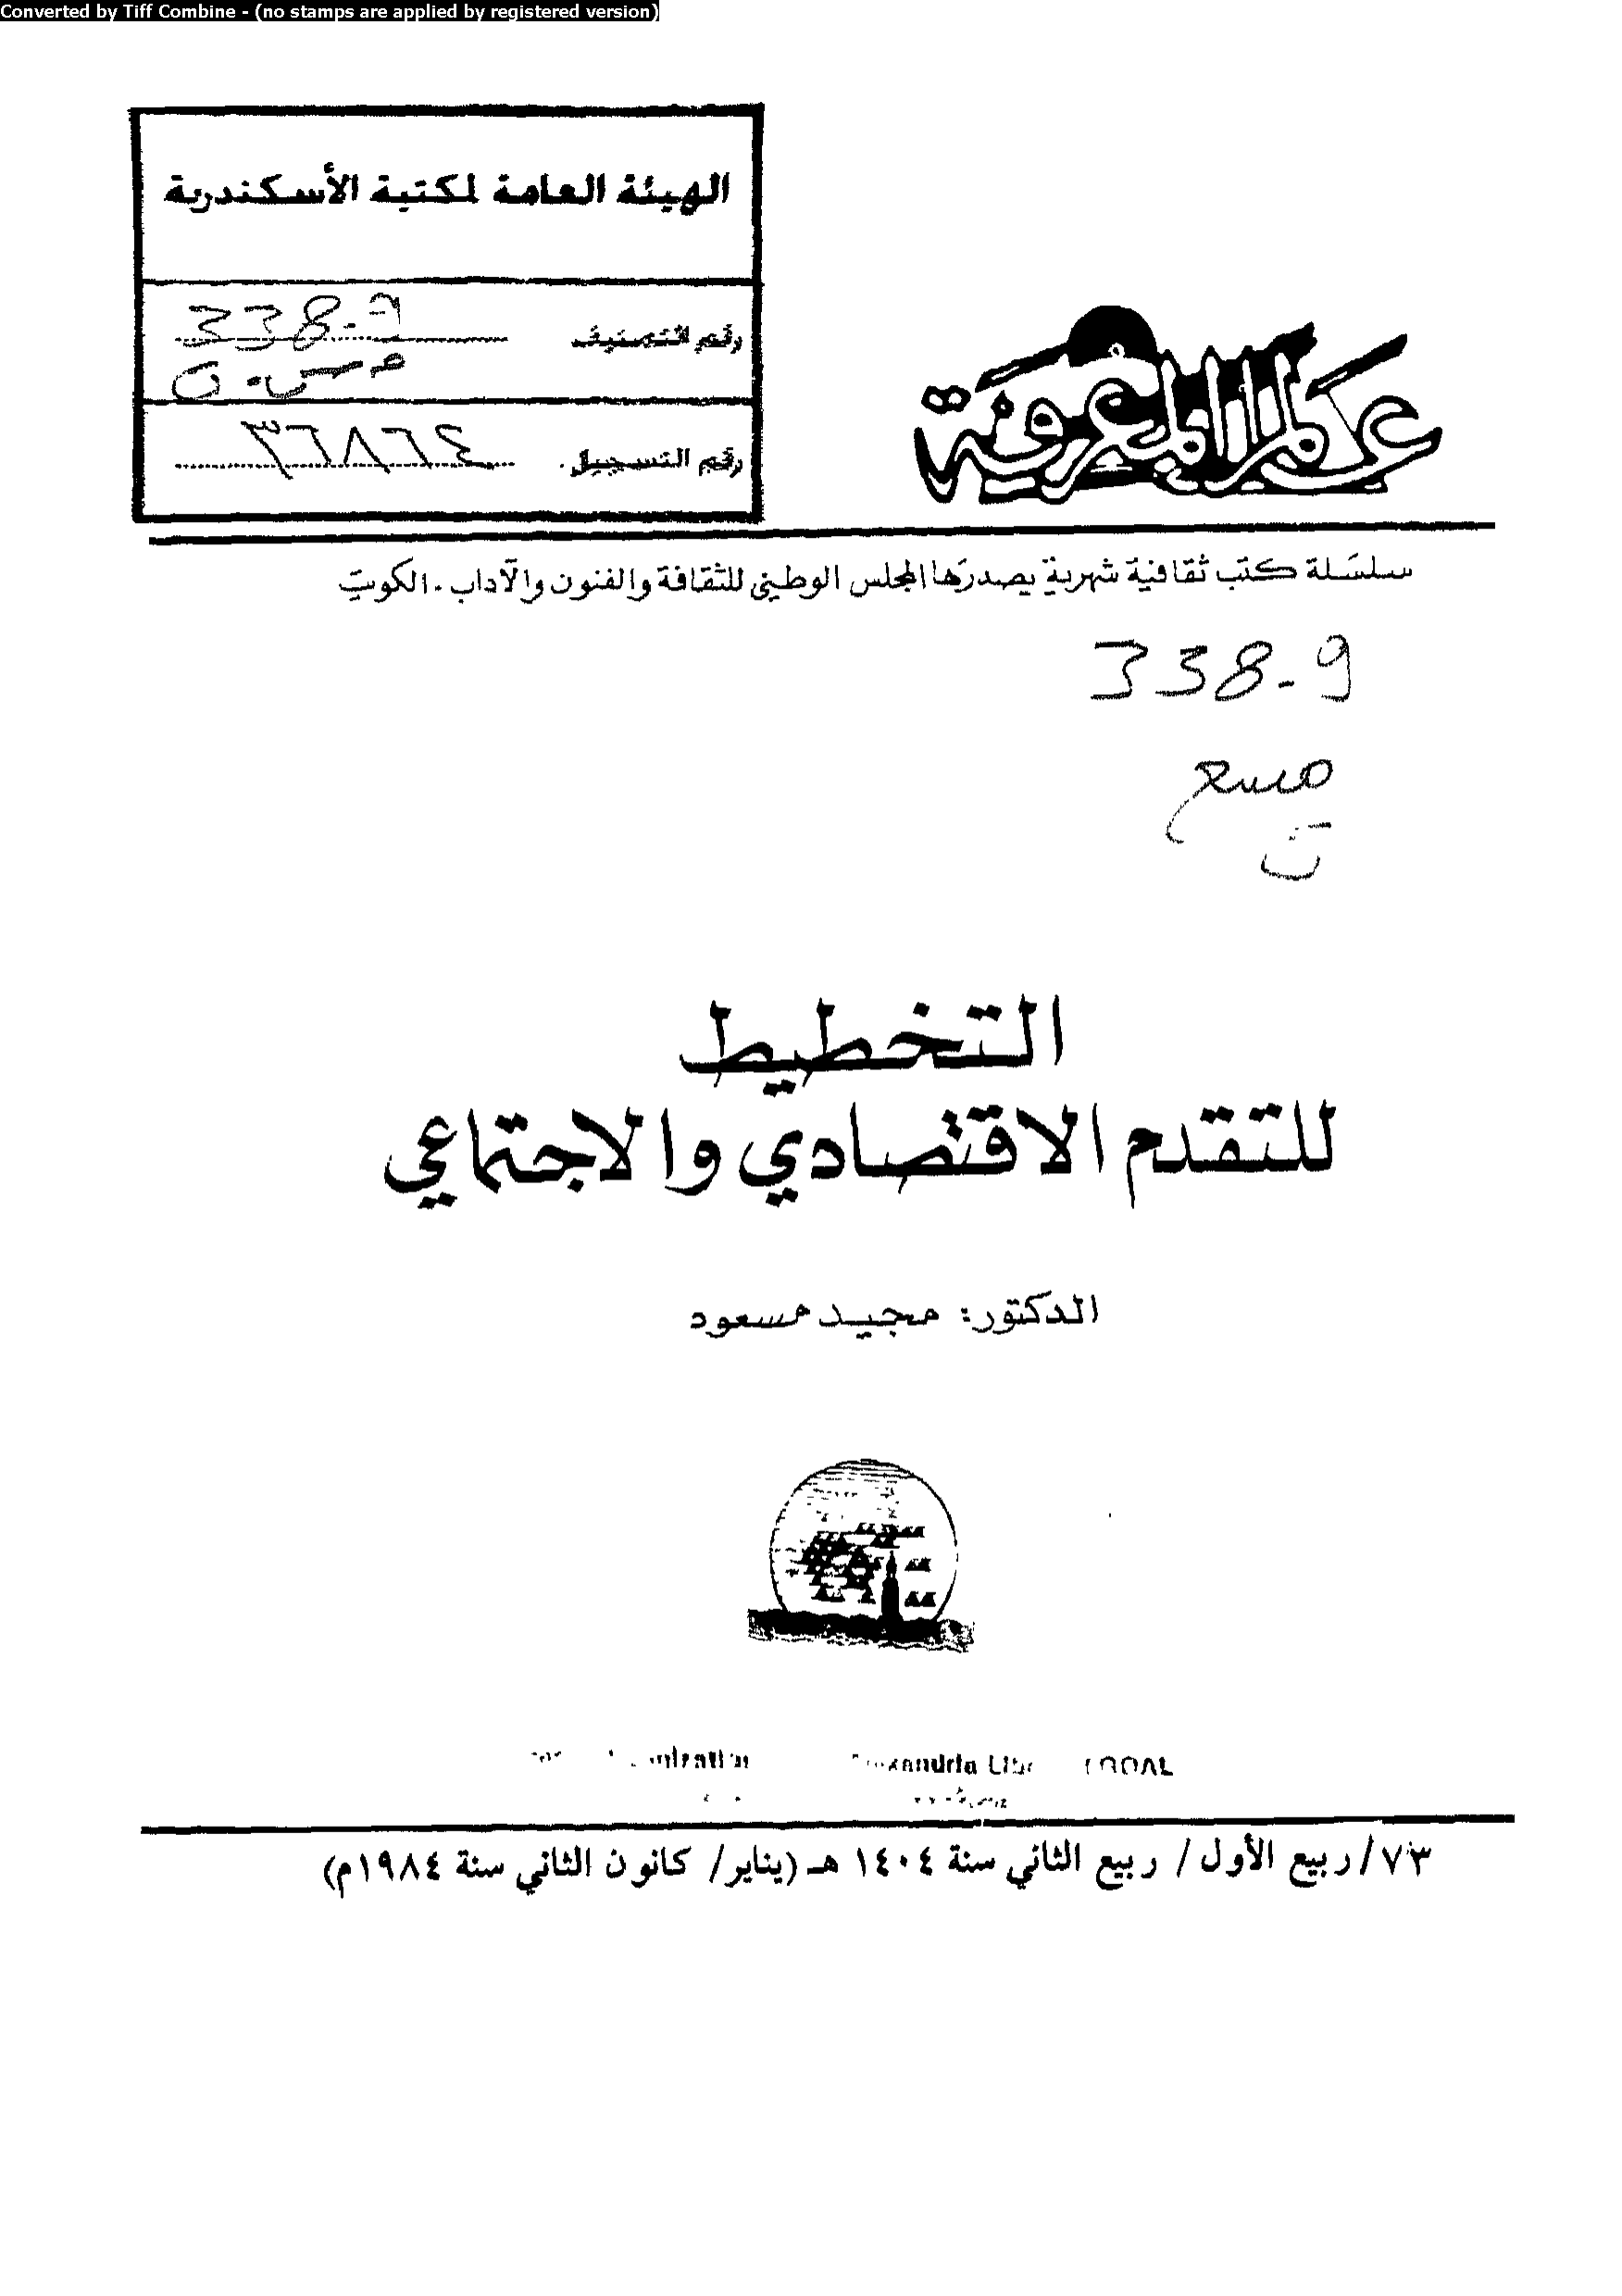 Converted by Tiff Combine - (no stamps are applied by registered version)
الهيئة العامة لمكتبة الأسكندرية
رقم التصنيف 338-9
رقم التسجيل ٣٦٨٦٤
عالم المعرفة
سلسلة كتب ثقافية شهرية يصدرها المجلس الوطني للثقافة والفنون والآداب - الكويت
338-9
مسع
ت
التخطيط
للتقدم الاقتصادي والاجتماعي
الدكتور: مجيد مسعود
٧٣/ ربيع الأول / ربيع الثاني سنة ١٤٠٤ هـ (يناير/ كانون الثاني سنة ١٩٨٤م)